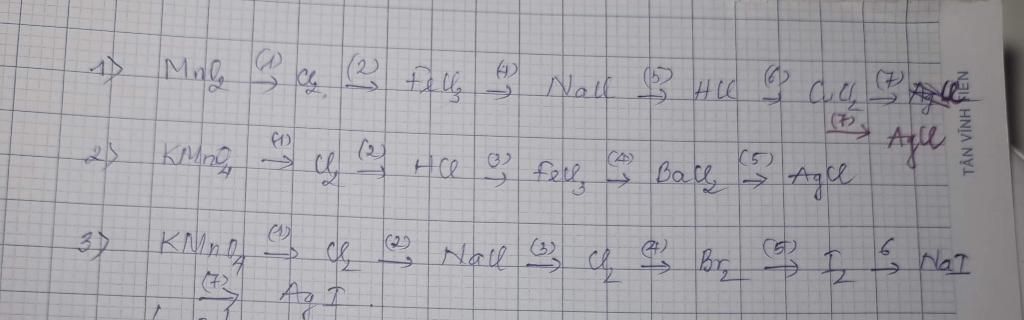 1) MnO2 (1)→ Cl2 (2)→ FeCl3 (4)→ NaCl (5)→ HCl (6)→ CuCl2 (7)→
(7)→ AgCl
2) KMnO4 (1)→ Cl2 (2)→ HCl (3)→ FeCl3 (4)→ BaCl2 (5)→ AgCl
3) KMnO4 (1)→ Cl2 (2)→ NaCl (3)→ Cl2 (4)→ Br2 (5)→ I2 6→ NaI
(7)→ AgI
TÂN VĨNH TIẾN